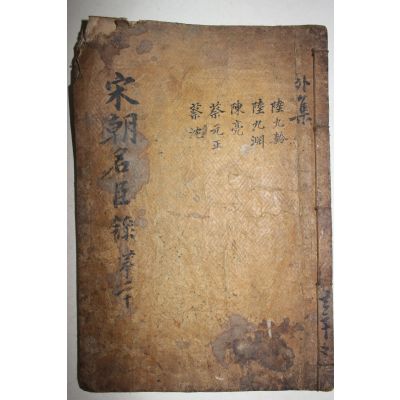 外集
陸九齡
陸九淵
陳亮
蔡元定
蔡沈
宋朝名臣錄